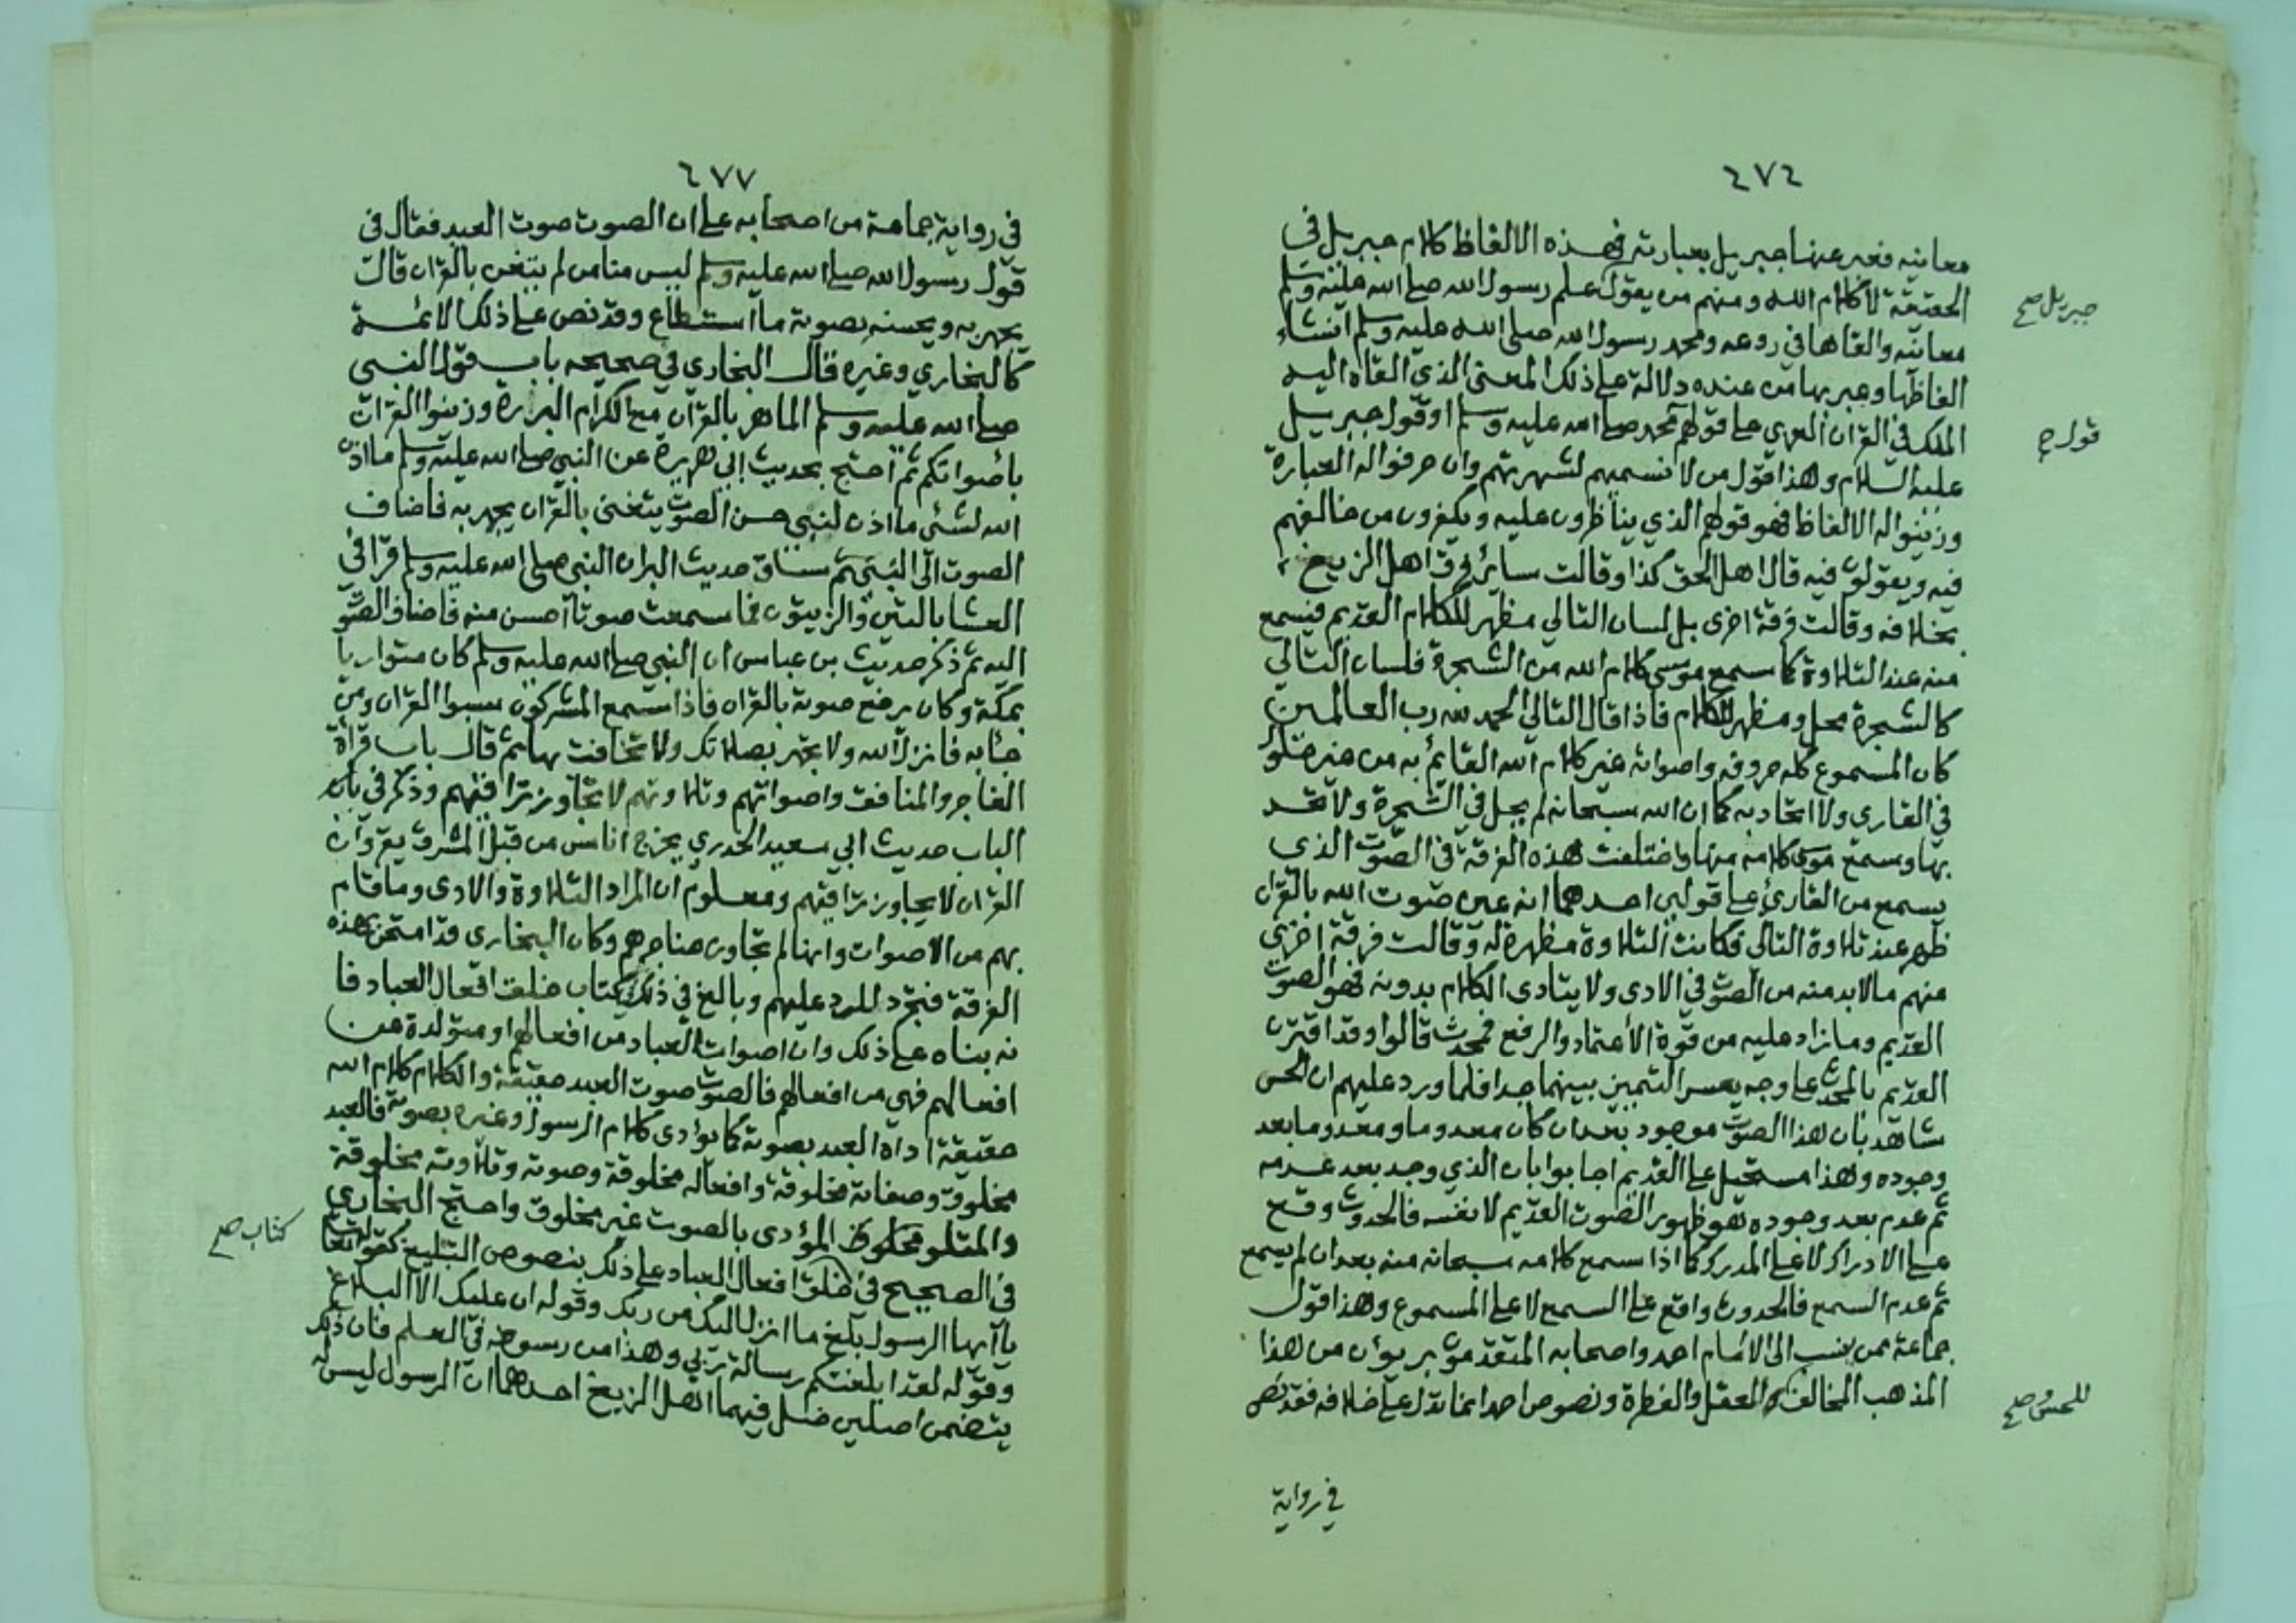 ٤٧٤
معانيه فعبر عنها جبريل بعبارته فهذه الالفاظ كلام جبريل في
الحقيقة لا كلام الله ومنهم من يقول علم رسول الله صلى الله عليه وسلم
جبريل صح
معانيه والقاها في روعه ومحمد رسول الله صلى الله عليه وسلم انشاء
الفاظها وعبر بها من عنده دلالة على ذلك المعنى الذي القاه اليه
الملك في القران العربي على قولهم محمد صلى الله عليه وسلم او قول جبريل
قول صح
عليه السلام وهذا قول من لا نسميهم لشهرتهم وان حرفوا له العبارة
وزينوا له الالفاظ فهو قولهم الذي يناظرون عليه ويكفرون من خالفهم
فيه ويقولون فيه قال اهل الحق كذا وقالت ساير فرق اهل الزيغ
بخلافه وقالت فرقة اخرى بل لسان التالي مظهر للكلام القديم فيسمع
منه عند التلاوة كما سمع موسى كلام الله من الشجرة فلسان التالي
كالشجرة محل ومظهر للكلام فاذا قال التالي الحمد لله رب العالمين
كان المسموع كله حروفه واصواته غير كلام الله القايم به من غير حلول
في القاري ولا اتحاد به كما ان الله سبحانه لم يحل في الشجرة ولا تحد
بها وسمع موسى كلامه منها واختلفت هذه الفرقة في الصوت الذي
يسمع من القارئ على قولين احدهما انه عين صوت الله بالقران
ظهر عند تلاوة التالي فكانت التلاوة مظهرة له وقالت فرقة اخرى
منهم ما لابد منه من الصوت في الادى ولا يتادى الكلام بدونه فهو الصوت
القديم وما زاد عليه من قوة الاعتماد والرفع فمحدث قالوا وقد اقترن
القديم بالمحدث على وجه يعسر التمييز بينهما جدا فلما ورد عليهم ان الحس
شاهد بان هذا الصوت موجود بعد ان كان معدوما ومعدوما بعد
وجوده وهذا مستحيل على القديم اجابوا بان الذي وجد بعد عدمه
ثم عدم بعد وجوده هو ظهور الصوت القديم لا نفسه فالحدوث وقع
على الادراك لا على المدرك كما اذا سمع كلامه سبحانه منه بعد ان لم يسمع
ثم عدم السمع فالحدوث واقع على السمع لا على المسموع وهذا قول
جماعة ممن ينسب الى الامام احمد واصحابه المتقدمون بريؤن من هذا
المذهب المخالف للعقل والفطرة ونصوص احمد انما تدل على خلافه فقد نص
للحس و صح
في رواية
٤٧٧
في رواية جماعة من اصحابه على ان الصوت صوت العبد فقال في
قول رسول الله صلى الله عليه وسلم ليس منا من لم يتغن بالقران قالت
يجهر به ويحسنه بصوته ما استطاع وقد نص على ذلك الائمة
كالبخاري وغيره قال البخاري في صحيحه باب قول النبي
صلى الله عليه وسلم الماهر بالقرآن مع الكرام البررة وزينوا القرات
بأصواتكم ثم احتج بحديث ابي هريرة عن النبي صلى الله عليه وسلم ما اذن
الله لشئ ما اذن لنبي حسن الصوت يتغنى بالقران يجهر به فاضاف
الصوت الى النبي ثم ساق حديث البرا ان النبي صلى الله عليه وسلم قرا في
العشا بالتين والزيتون فما سمعت صوتا احسن منه فاضاف الصوت
اليه ثم ذكر حديث بن عباس ان النبي صلى الله عليه وسلم كان متواريا
بمكة وكان يرفع صوته بالقران فاذا سمع المشركون سبوا القران ومن
جئا به فانزل الله ولا تجهر بصلاتك ولا تخافت بها ثم قال باب قراة
الفاجر والمنافق واصواتهم وتلاوتهم لا تجاوز تراقيهم وذكر في باب
الباب حديث ابي سعيد الخدري يخرج اناس من قبل المشرق يقرؤان
القران لا يجاوز تراقيهم ومعلوم ان المراد التلاوة والادى وما قام
بهم من الاصوات وانها لم تجاوز حناجرهم وكان البخاري قد امتحن بهذه
الفرقة فتجرد للرد عليهم وبالغ في ذلك في كتاب خلق افعال العباد فا
نه بناه على ذلك وان اصوات العباد من افعالهم او متولدة عن
افعالهم فهي من افعالهم فالصوت صوت العبد حقيقة والكلام كلام الله
حقيقة اداه العبد بصوته كما يؤدى كلام الرسول وغيره بصوته فالعبد
مخلوق وصفاته مخلوقة وافعاله مخلوقة وصوته وتلاوته مخلوقة
والمتلو المؤدى بالصوت غير مخلوق واحتج البخاري
كتاب صح
في الصحيح في خلق افعال العباد على ذلك بنصوص التبليغ كقوله تعالى
يا أيها الرسول بلغ ما انزل اليك من ربك وقوله ان عليك الا البلاغ
وقوله لقد ابلغتكم رسالة ربي وهذا من رسوخه في العلم فان ذلك
يتضمن اصلين ضل فيهما اهل الزيغ احدهما ان الرسول ليس له